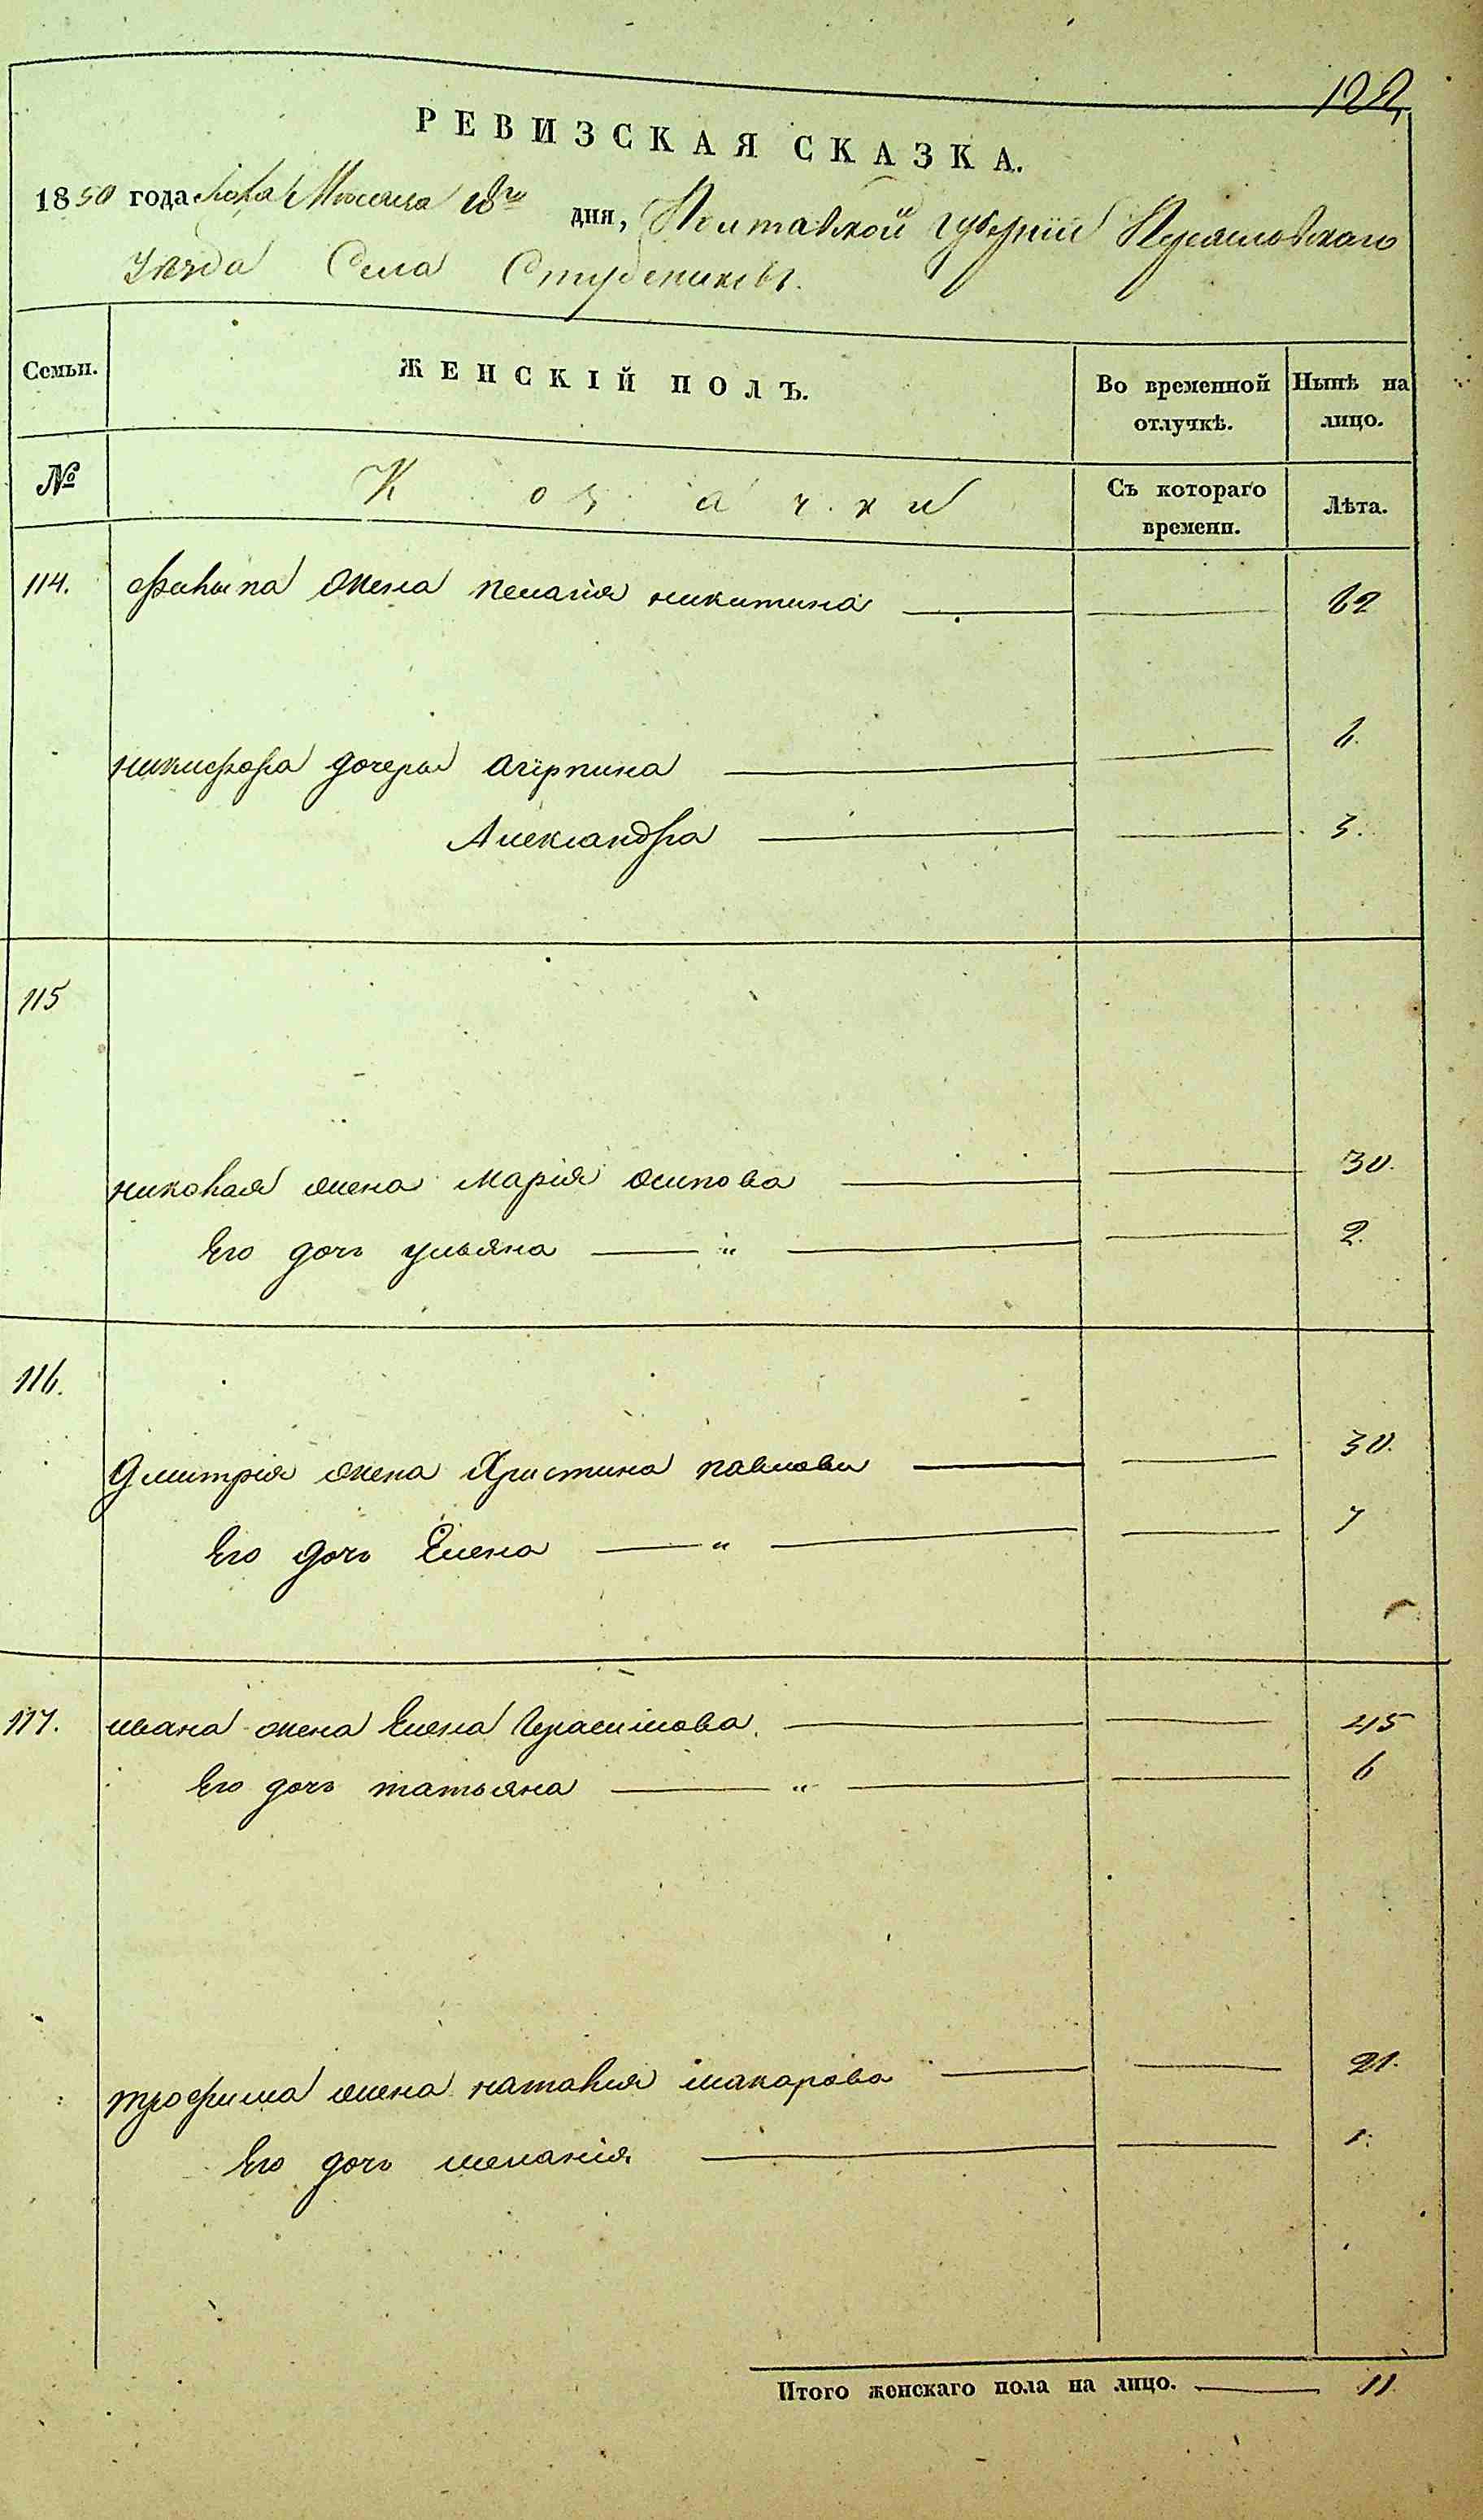 122
РЕВИЗСКАЯ СКАЗКА.
1850 года Мѣсяца 18го дня, Полтавской губерніи Переясловскаго
уѣзда Села Студениковъ.
Семьи. ЖЕНСКІЙ ПОЛЪ. Во временной отлучкѣ. Нынѣ на лицо.
№ Козачки Съ котораго времени. Лѣта.
114. Филипа жена пелагія никитина 62
никифора дочеры агрпина 6.
Александра 3.
115
николая жена марія осипова 30.
Его дочь ульяна — „ — 2.
116.
Дмитрія жена Христина павлова 30.
Его дочь Елена — „ — 7
117. ивана жена Елена Герасимова 45
Его дочь татьяна — „ — 6
трофима жена наталия макарова 21.
Его дочь меланія 1.
Итого женскаго пола на лицо. — 11